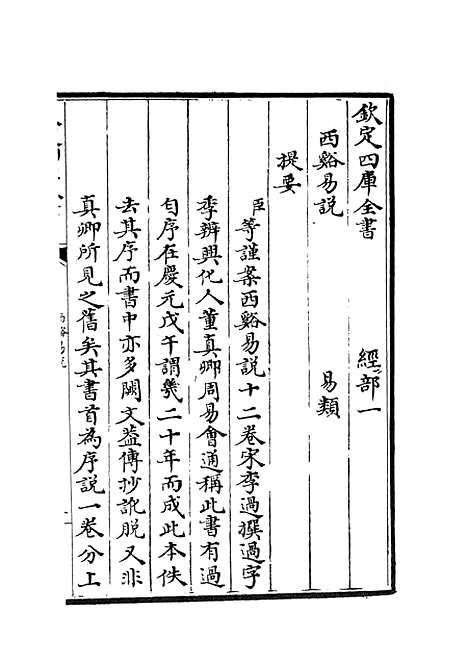 欽定四庫全書　經部一
西谿易說　易類
提要
臣等謹案西谿易說十二卷宋李過撰過字
季辨興化人董真卿周易會通稱此書有過
自序在慶元戊午謂幾二十年而成此本佚
去其序而書中亦多闕文蓋傳抄訛脫又非
真卿所見之舊矣其書首為序說一卷分上
西谿易說